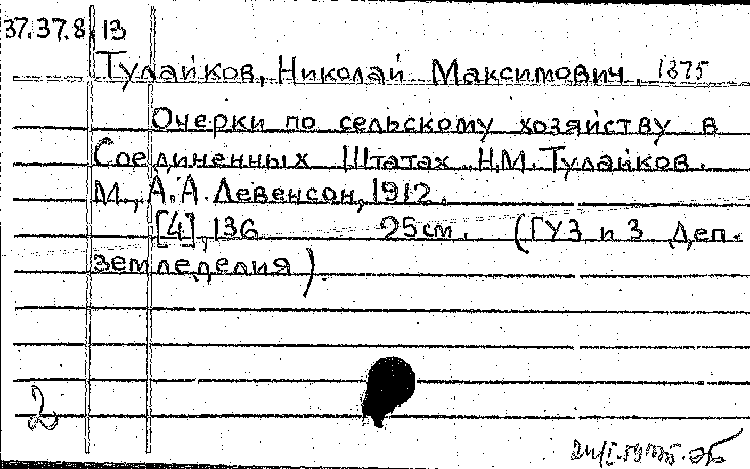 37.37.8 13
Тулайков, Николай Максимович, 1875
Очерки по сельскому хозяйству в
Соединенных Штатах. Н.М. Тулайков.
М., А.А. Левенсон, 1912.
[4], 136 25см. (ГУЗ и З Деп.
земледелия).
2